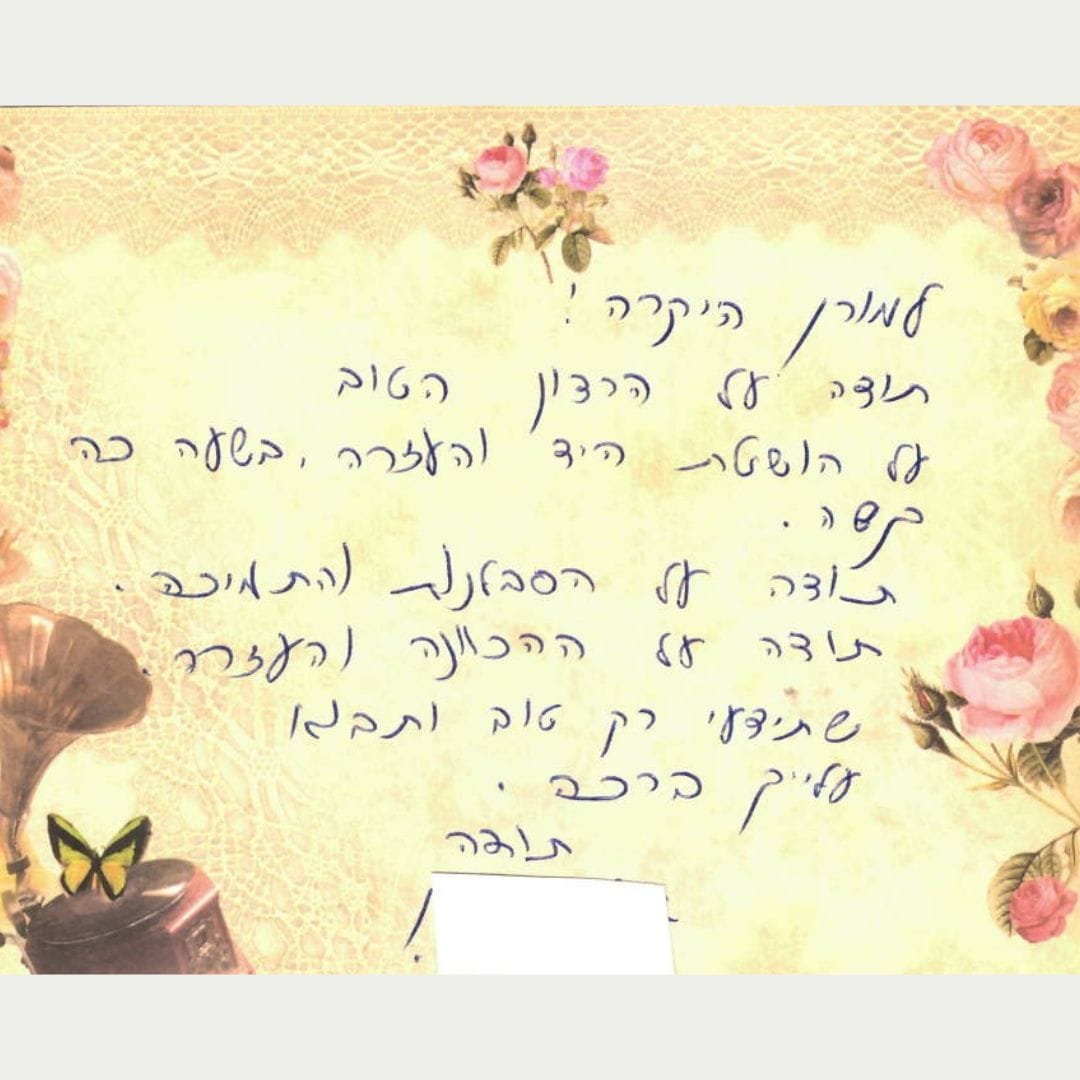 למורן היקרה !
תודה על הרצון הטוב
על הושטת היד והעזרה, בשעה כה
קשה .
תודה על הסבלנות והתמיכה .
תודה על ההכוונה והעזרה .
שתידעי רק טוב ותבוא
עלייך ברכה .
תודה